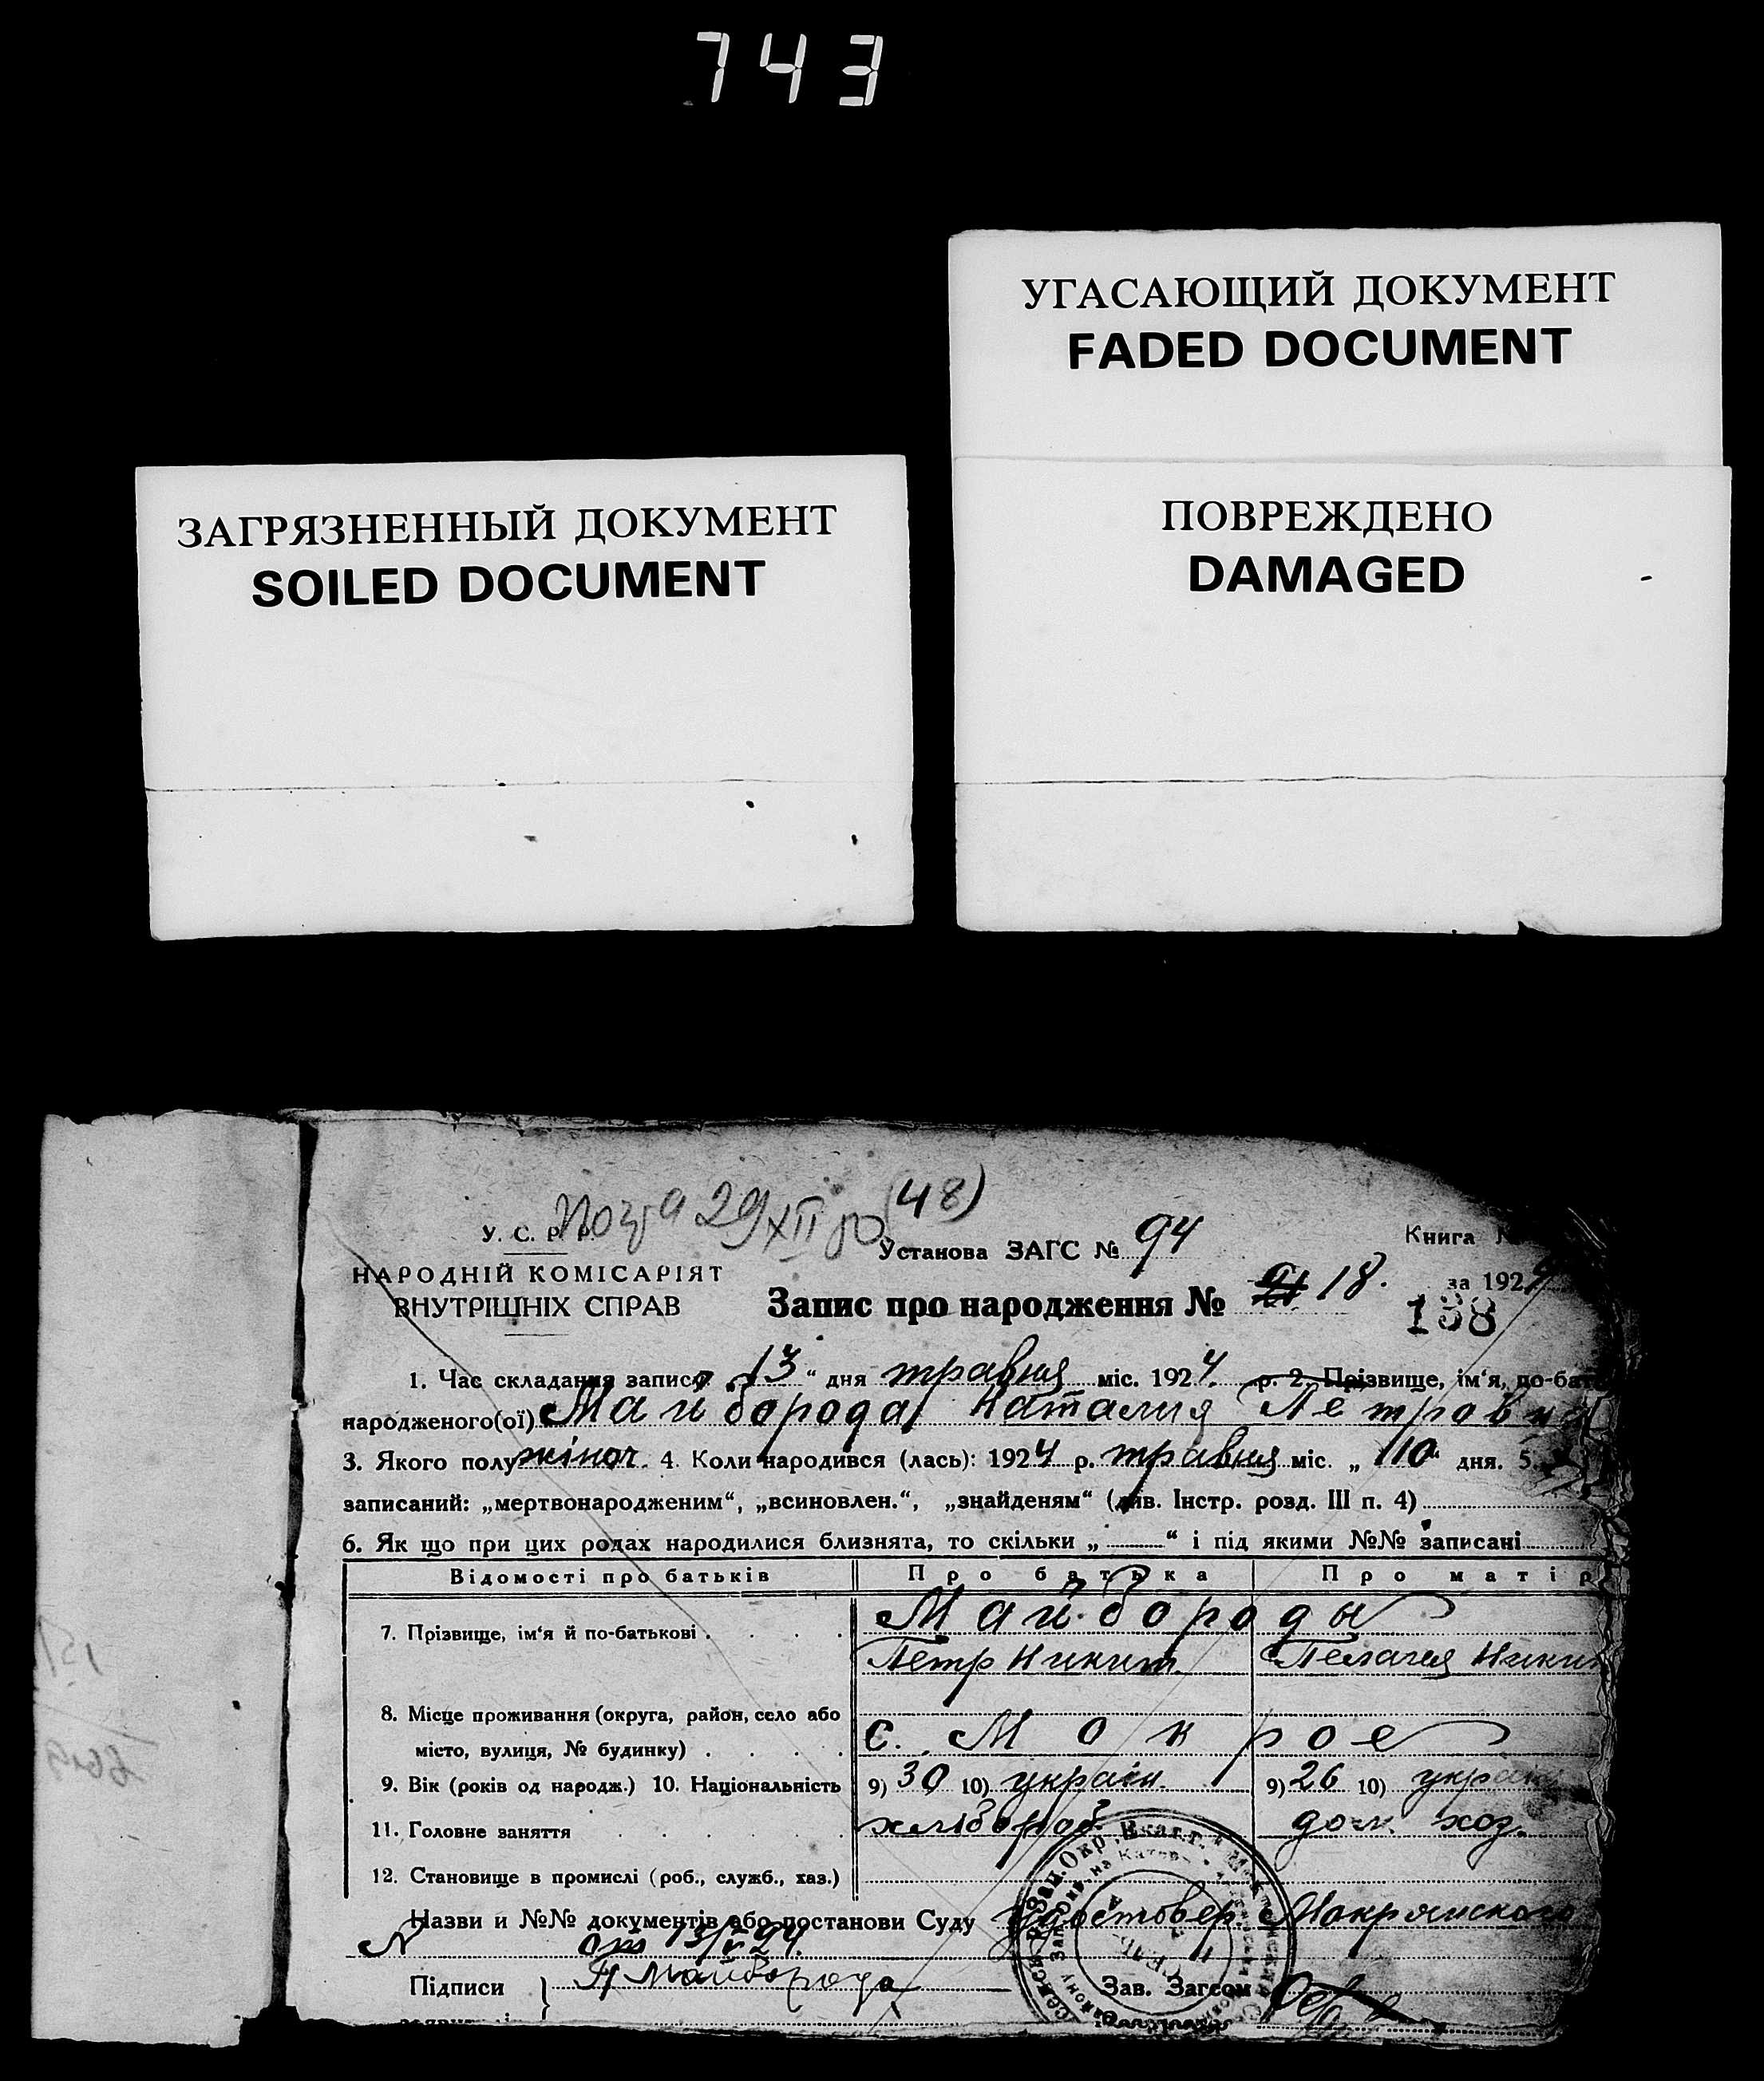 743
УГАСАЮЩИЙ ДОКУМЕНТ
FADED DOCUMENT
ЗАГРЯЗНЕННЫЙ ДОКУМЕНТ
SOILED DOCUMENT
ПОВРЕЖДЕНО
DAMAGED
29 XII (48)
У. С. Р. Р.
Установа ЗАГС № 94
Книга
НАРОДНІЙ КОМІСАРІЯТ
ВНУТРІШНІХ СПРАВ
Запис про народження № 18.
за 1924
138
1. Час складання запису „13“ дня травня міс. 1924 р. 2. Прізвище, ім'я, по-бат
народженого(ої) Майборода Наталия Петровна
3. Якого полу жіноч. 4. Коли народився (лась): 1924 р. травня міс. „10“ дня. 5.
записаний: „мертвонародженим“, „всиновлен.“, „знайденям“ (див. Інстр. розд. III п. 4)
6. Як що при цих родах народилися близнята, то скільки „ “ і під якими №№ записані
Відомості про батьків Про батька Про матір
7. Прізвище, ім'я й по-батькові Майбороды
Петр Никит. Пелагея Никит
8. Місце проживання (округа, район, село або
місто, вулиця, № будинку) с. Мокрое
9. Вік (років од народж.) 10. Національність 9) 30 10) україн. 9) 26 10) україн
11. Головне заняття хлібороб. дом. хоз.
12. Становище в промислі (роб., служб., хаз.)
Назви и №№ документів або постанови Суду удостовер. Мокрянского
N от 13/V 24.
Підписи } П Майборода Зав. Загсом